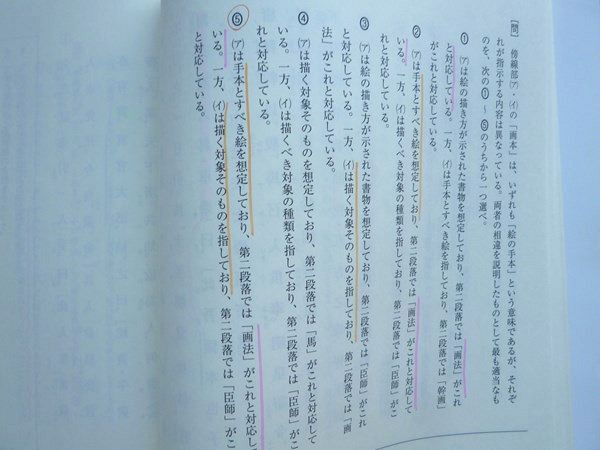 【問】　傍線部㋐・㋑の「画本」は、いずれも「絵の手本」という意味であるが、それぞ
れが指示する内容は異なっている。両者の相違を説明したものとして最も適当なも
のを、次の①～⑤のうちから一つ選べ。
①　㋐は絵の描き方が示された書物を想定しており、第二段落では「画法」がこれ
と対応している。一方、㋑は手本とすべき絵を指しており、第二段落では「幹画」
がこれと対応している。
②　㋐は手本とすべき絵を想定しており、第二段落では「画法」がこれと対応して
いる。一方、㋑は描くべき対象の種類を指しており、第二段落では「臣師」がこ
れと対応している。
③　㋐は絵の描き方が示された書物を想定しており、第二段落では「臣師」がこれ
と対応している。一方、㋑は描く対象そのものを指しており、第二段落では「画
法」がこれと対応している。
④　㋐は描く対象そのものを想定しており、第二段落では「馬」がこれと対応して
いる。一方、㋑は描くべき対象の種類を指しており、第二段落では「臣師」がこ
れと対応している。
⑤　㋐は手本とすべき絵を想定しており、第二段落では「画法」がこれと対応して
いる。一方、㋑は描く対象そのものを指しており、第二段落では「臣師」がこれ
と対応している。